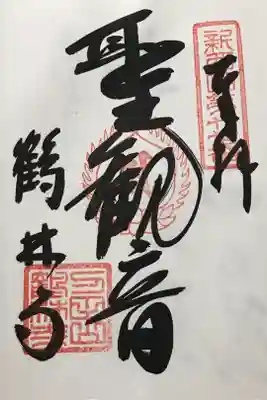 奉拝
聖観音
鶴林寺